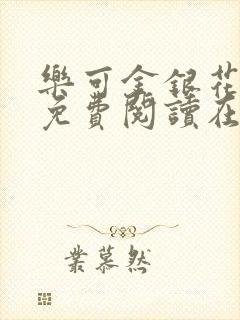 樂可金銀花
免費閱讀在
葉慕然